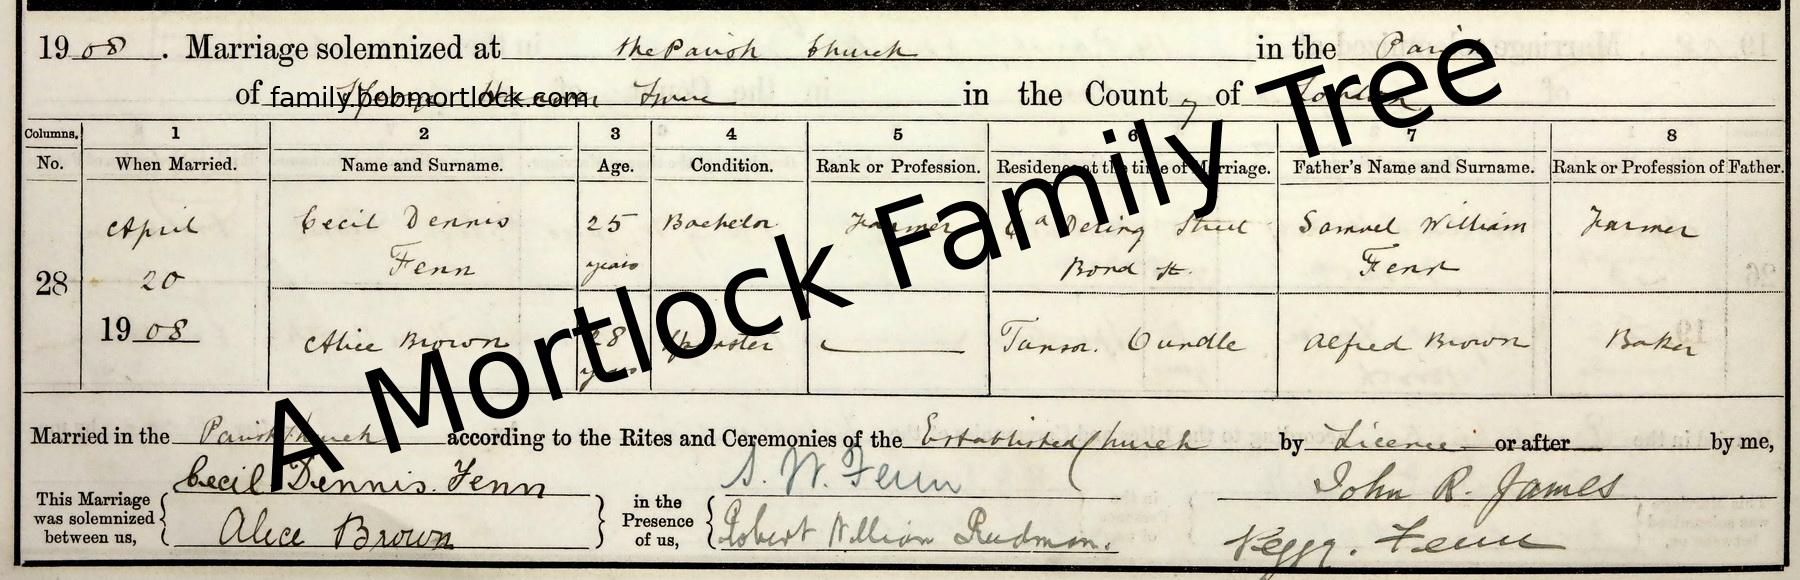 1908. Marriage solemnized at the Parish Church in the Parish
of Square in the County of London
family.bobmortlock.com
A Mortlock Family Tree
Columns. 1 2 3 4 5 6 7 8
No. When Married. Name and Surname. Age. Condition. Rank or Profession. Residence at the time of Marriage. Father's Name and Surname. Rank or Profession of Father.
April Cecil Dennis 25 Bachelor Farmer 6a Dering Street Samuel William Farmer
20 Fenn years Bond St. Fenn
28
1908 Alice Brown 28 Spinster Tansor. Oundle Alfred Brown Baker
years
Married in the Parish Church according to the Rites and Ceremonies of the Established Church by Licence or after by me,
Cecil Dennis Fenn S. W. Fenn John R. James
This Marriage was solemnized between us, in the Presence of us,
Alice Brown Robert William Rudman. Peggy. Fenn